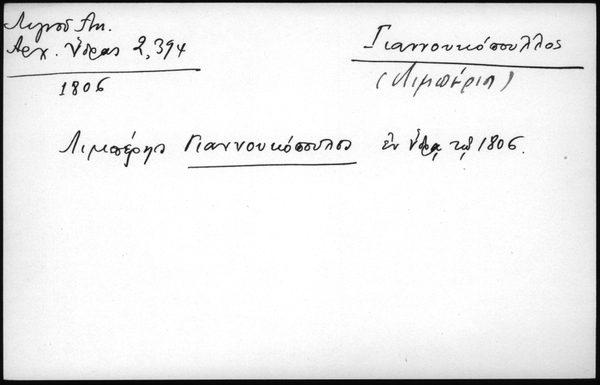 Λιγνοδ Αη.
Αρχ. Ύδρας 2,394
1806
Γιαννουκόπουλλος
(Λιμπέρης)
Λιμπέρης Γιαννουκόπουλος εν Ύδρᾳ τῷ 1806.